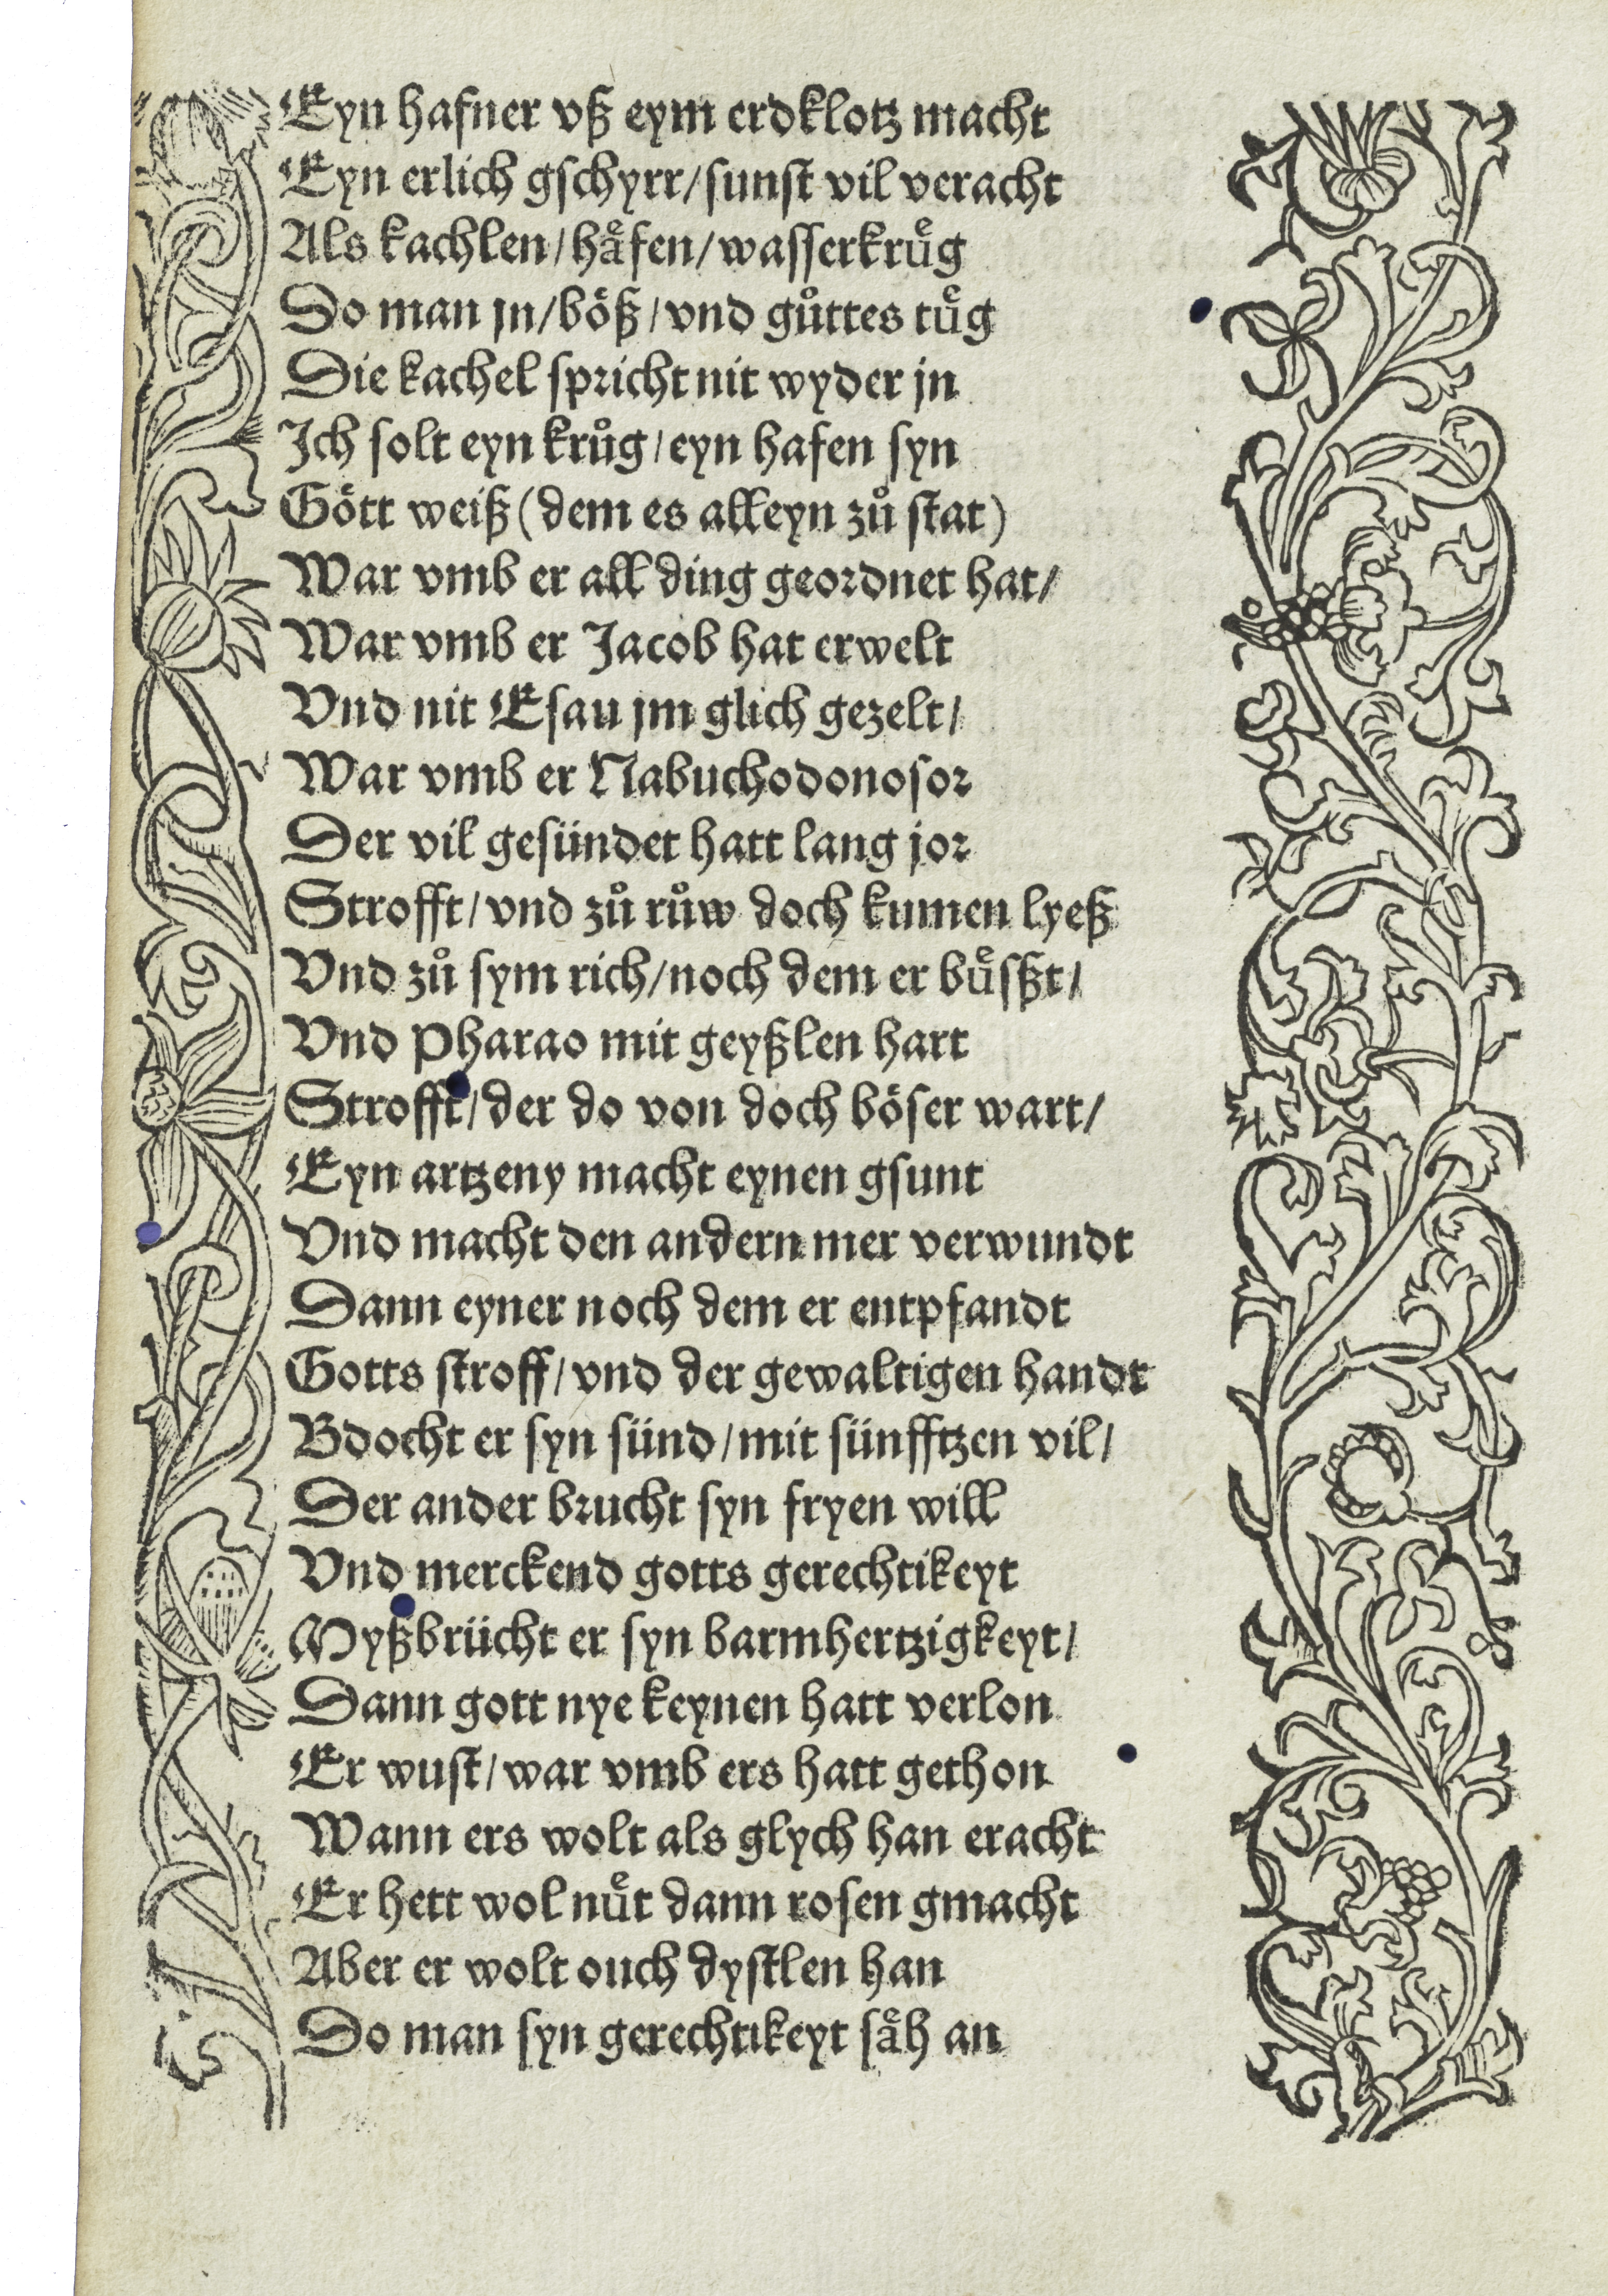 Eyn hafner vß eym erdklotz macht
Eyn erlich gschyrr/sunst vil veracht
Als kachlen/haͤfen/wasserkruͤg
Do man jn/böß/vnd guͦttes tuͤg
Die kachel spricht nit wyder jn
Ich solt eyn kruͦg/eyn hafen syn
Gött weiß (dem es alleyn zuͦ stat)
War vmb er all ding geordnet hat/
War vmb er Jacob hat erwelt
Vnd nit Esau jm glich gezelt/
War vmb er Nabuchodonosor
Der vil gesündet hatt lang jor
Strofft/vnd zuͦ ruͦw doch kumen lyeß
Vnd zuͦ sym rich/noch dem er buͤsßt/
Vnd Pharao mit geyßlen hart
Strofft/der do von doch böser wart/
Eyn artzeny macht eynen gsunt
Vnd macht den andern mer verwundt
Dann eyner noch dem er entpfandt
Gotts stroff/vnd der gewaltigen handt
Bdocht er syn sünd/mit sünfftzen vil/
Der ander brucht syn fryen will
Vnd merckend gotts gerechtikeyt
Myßbrücht er syn barmhertzigkeyt/
Dann gott nye keynen hatt verlon
Er wust/war vmb ers hatt gethon
Wann ers wolt als glych han eracht
Er hett wol nuͤt dann rosen gmacht
Aber er wolt ouch dystlen han
Do man syn gerechtikeyt saͤh an